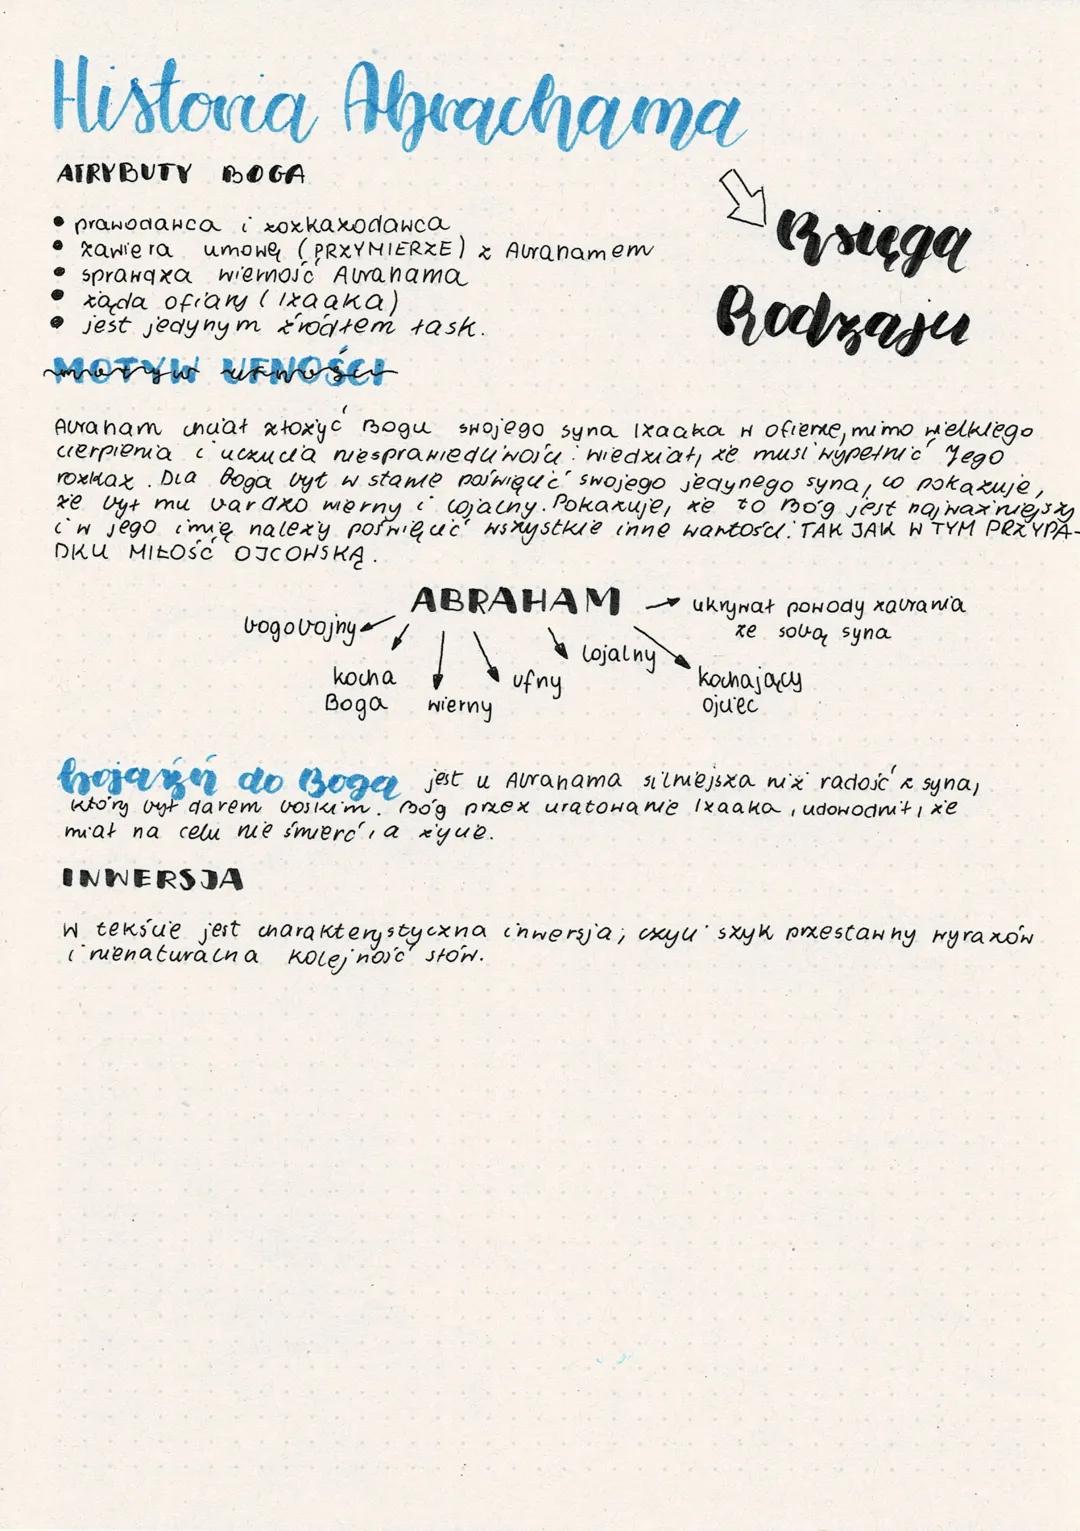 Historia Abrachama
ATRYBUTY BOGA
Księga
Rodzaju
• prawodawca i rozkazodawca
• zawiera umowę (PRZYMIERZE) z Abrahamem
• sprawdza wierność Abrahama
• żąda ofiary (Izaaka)
• jest jedynym źródłem łask.
MOTYW UFNOŚCI
motyw ufności
Abraham chciał złożyć Bogu swojego syna Izaaka w ofierze, mimo wielkiego
cierpienia i uczucia niesprawiedliwości. wiedział, że musi wypełnić Jego
rozkaz. Dla Boga był w stanie poświęcić swojego jedynego syna, co pokazuje,
że był mu bardzo wierny i lojalny. Pokazuje, że to Bóg jest najważniejszy
i w jego imię należy poświęcić wszystkie inne wartości. TAK JAK W TYM PRZYPA-
DKU MIŁOŚĆ OJCOWSKĄ.
ABRAHAM
ukrywał powody zabrania
ze sobą syna
bogobojny
kocha
Boga
wierny
ufny
lojalny
kochający
ojciec
bojaźń do Boga jest u Abrahama silniejsza niż radość z syna,
który był darem boskim. Bóg przez uratowanie Izaaka, udowodnił, że
miał na celu nie śmierć, a życie.
INWERSJA
W tekście jest charakterystyczna inwersja, czyli szyk przestawny wyrazów
i nienaturalna kolejność słów.